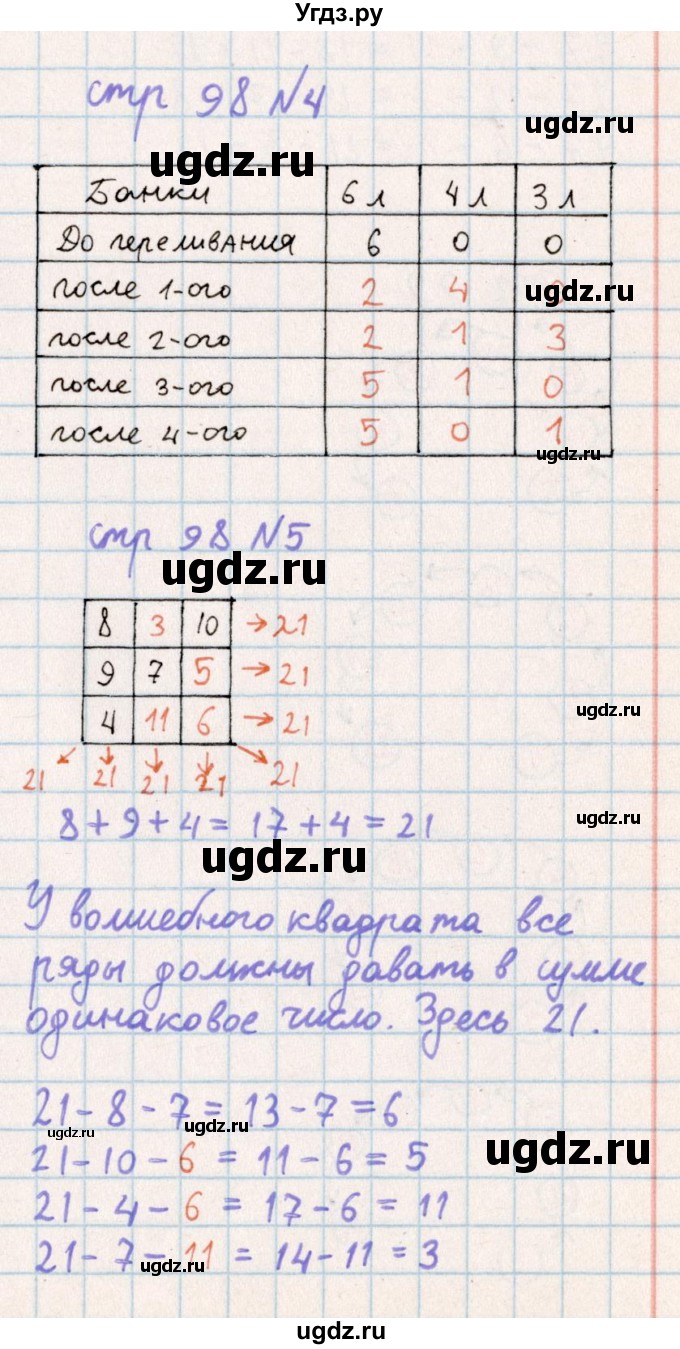 Угдз.ру
стр 98 №4
ugdz.ru
ugdz.ru
Банки 6 л 4 л 3 л
До переливания 6 0 0
после 1-ого 2 4 0
ugdz.ru
после 2-ого 2 1 3
после 3-ого 5 1 0
после 4-ого 5 0 1
ugdz.ru
стр 98 №5
ugdz.ru
8 3 10 → 21
9 7 5 → 21
4 11 6 → 21
ugdz.ru
21 21 21 21 21
8 + 9 + 4 = 17 + 4 = 21
ugdz.ru
ugdz.ru
У волшебного квадрата все
ряды должны давать в сумме
одинаковое число. Здесь 21.
21 - 8 - 7 = 13 - 7 = 6
ugdz.ru
ugdz.ru
21 - 10 - 6 = 11 - 6 = 5
ugdz.ru
21 - 4 - 6 = 17 - 6 = 11
21 - 7 - 11 = 14 - 11 = 3
ugdz.ru
ugdz.ru